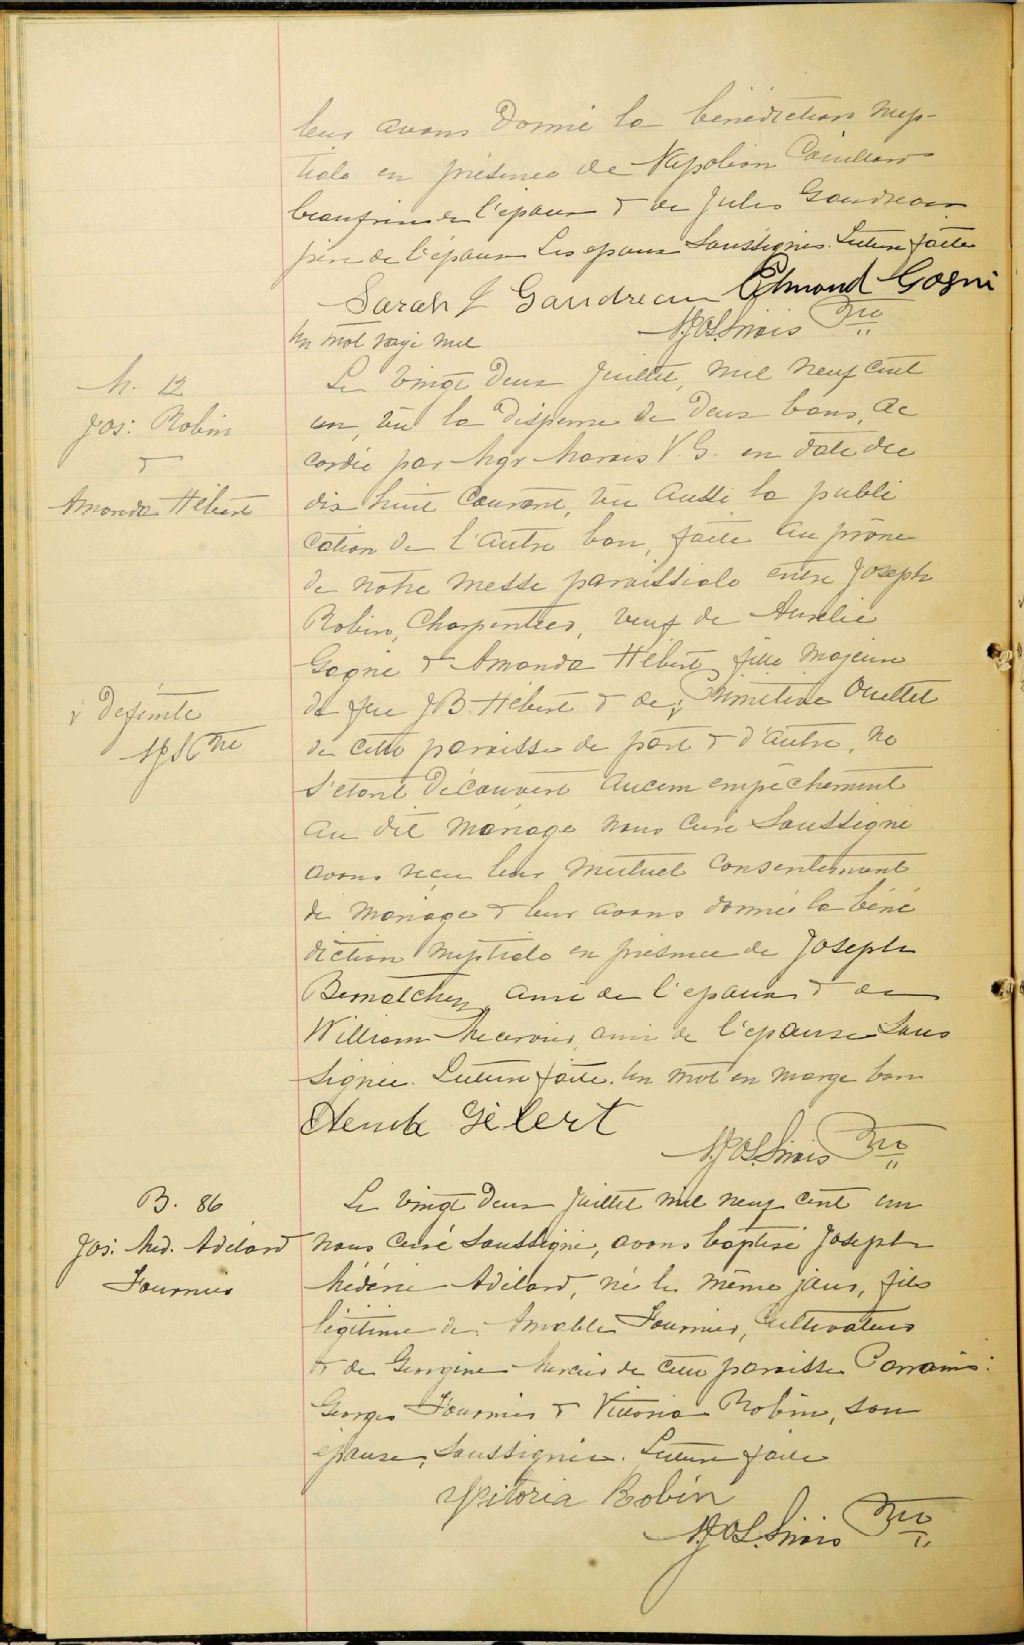 leur avons donné la bénédiction nup-
tiale en présence de Napoléon
beaufrère de l'époux & de Jules Gaudreau
père de l'épouse Les époux soussignés. Lecture faite
Sarah J Gaudreau Edmond Gagné
Un mot rayé nul
Ptre
M. 12
Jos: Robin
&
Amanda Hébert
Le vingt deux Juillet, mil neuf cent
un, vu la dispense de deux bans, ac
cordée par Mgr Marois V. G. en date du
dix huit courant, vu aussi la publi
cation de l'autre ban, faite au prône
de notre messe paroissiale entre Joseph
Robin, Charpentier, veuf de Aurélie
Gagné & Amanda Hébert, fille majeure
de feu J B. Hébert & de Primitive Ouellet
v Défunte
Ptre
de cette paroisse de part & d'autre, ne
s'étant découvert aucun empêchement
au dit mariage nous curé soussigné
avons reçu leur mutuel consentement
de mariage & leur avons donné la béné
diction nuptiale en présence de Joseph
Bernatchez, ami de l'époux & de
William ami de l'épouse sous
signée. Lecture faite. Un mot en marge bon
Ptre
B. 86
Jos: Méd. Adélard
Fournier
Le vingt deux Juillet mil neuf cent un
nous curé soussigné, avons baptisé Joseph
Médéric Adélard, né le même jour, fils
légitime de Amable Fournier, Cultivateur
& de Georgine Mercier de cette paroisse Parrains:
Georges Fournier & Vittoria Robin, son
épouse, soussignée. Lecture faite
Vitoria Robin
Ptre